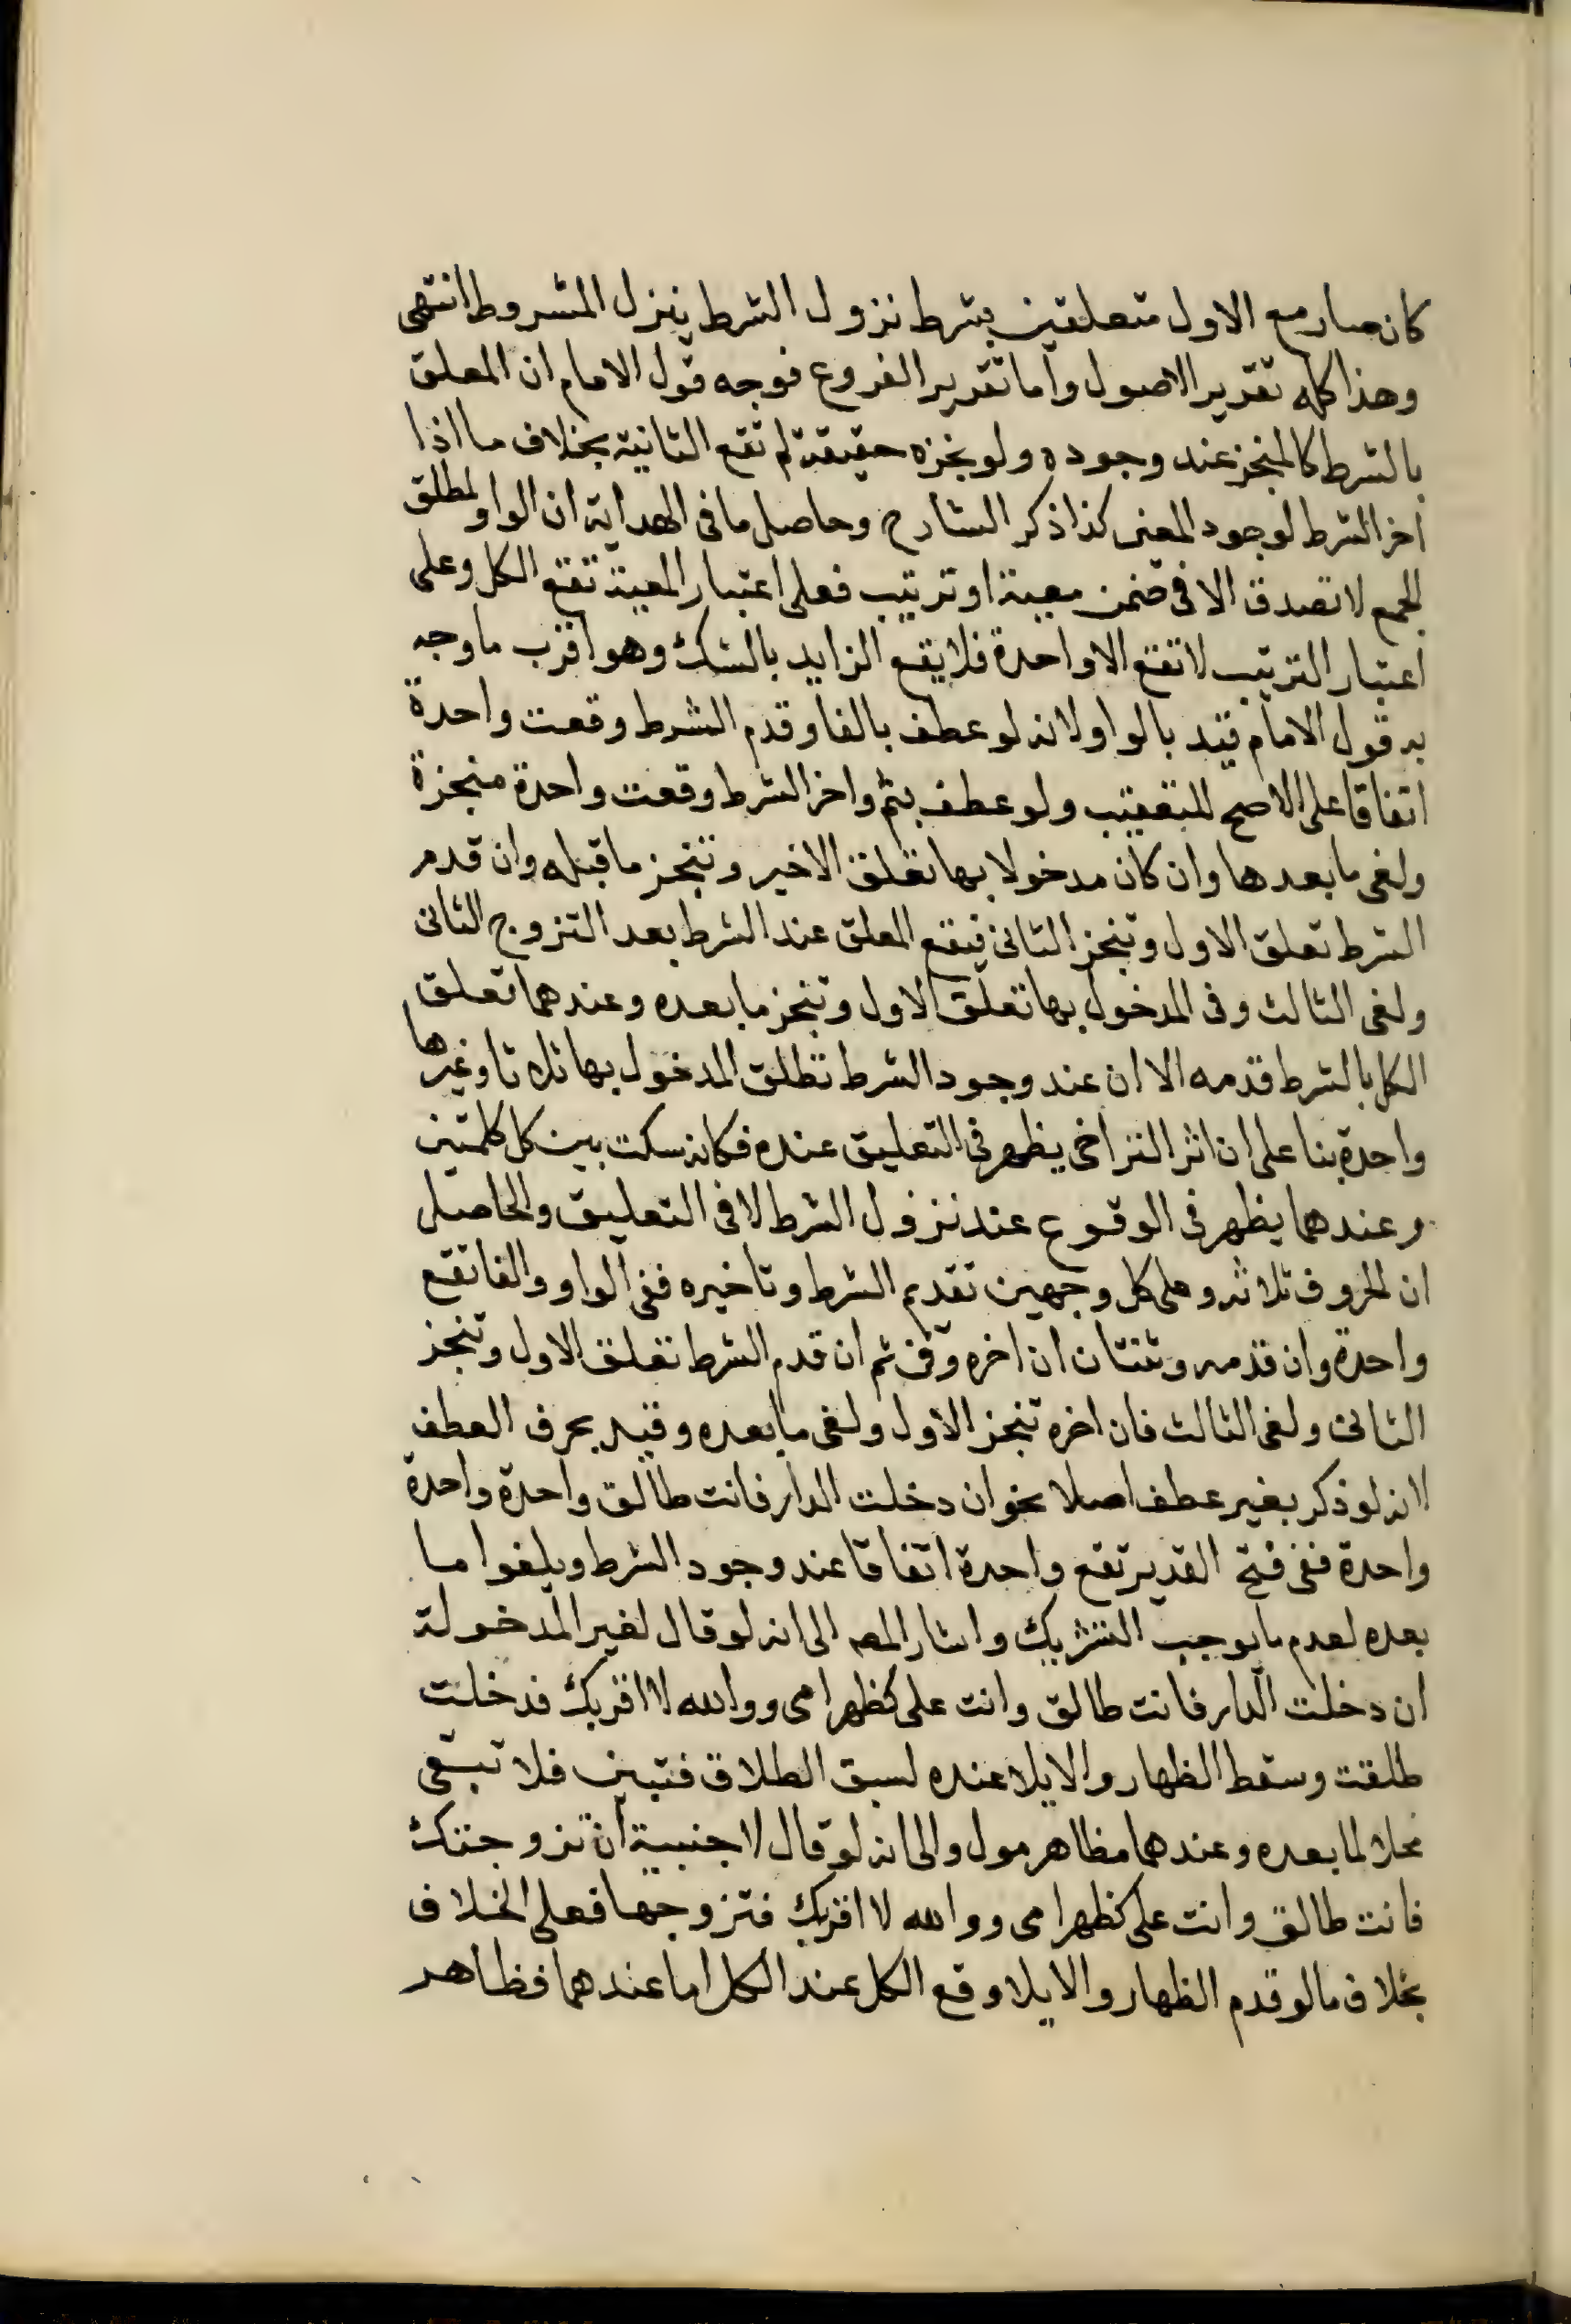 كان صار مع الاول متعلقين بشرط نزول الشرط ينزل المشروط انتهى
وهذا كله تقدير الاصول واما تقرير الفروع فوجه قول الامام ان المعلق
بالشرط كالمنجز عند وجوده ولو نجزه حقيقة لم تقع الثانية بخلاف ما اذا
اخر الشرط لوجود المغير كذا ذكر الشارح وحاصل ما فى الهداية ان الواو لمطلق
الجمع لا تصدق الا فى ضمن معية او ترتيب فعلى اعتبار المعية تقع الكل وعلى
اعتبار الترتيب لا تقع الا واحدة فلا يقع الزايد بالشك وهو اقرب ما وجه
به قول الامام قيد بالواو لانه لو عطف بالفا وقدم الشرط وقعت واحدة
اتفاقا على الاصح للتعقيب ولو عطف بثم واخر الشرط وقعت واحدة منجزة
ولغى ما بعدها وان كان مدخولا بها تعلق الاخير وتنجز ما قبله وان قدم
الشرط تعلق الاول وتنجز الثانى فيقع المعلق عند الشرط بعد التزوج الثانى
ولغى الثالث وفى المدخول بها تعلق الاول وتنجز ما بعده وعندهما تعلق
الكل بالشرط قدمه الا ان عند وجود الشرط تطلق المدخول بها ثلاثا وغيرها
واحدة بنا على ان اثر التراخى يظهر فى التعليق عنده فكانه سكت بين كل كلمتين
وعندهما يظهر فى الوقوع عند نزول الشرط لا فى التعليق والحاصل
ان الحروف ثلاثه وعلى كل وجهين تقديم الشرط وتاخيره ففى الواو والفا تقع
واحدة وان قدمه وثنتان ان اخره وفى ثم ان قدم الشرط تعلق الاول وتنجز
الثانى ولغى الثالث فان اخره تنجز الاول ولغى ما بعده وقيد بحرف العطف
لانه لو ذكر بغير عطف اصلا نحو ان دخلت الدار فانت طالق واحدة واحدة
واحدة ففى فتح القدير تقع واحدة اتفاقا عند وجود الشرط ويلغوا ما
بعده لعدم ما يوجب التشريك واشار المص الى انه لو قال لغير المدخولة
ان دخلت الدار فانت طالق وانت على كظهر امى ووالله لا اقربك فدخلت
طلقت وسقط الظهار والايلا عنده لسبق الطلاق فتبين فلا تبقى
محلا لما بعده وعندهما مظاهر مول والى انه لو قال لاجنبية ان تزوجتك
فانت طالق وانت على كظهر امى ووالله لا اقربك فتزوجها فعلى الخلاف
بخلاف ما لو قدم الظهار والايلا وقع الكل عند الكل اما عندهما فظاهر